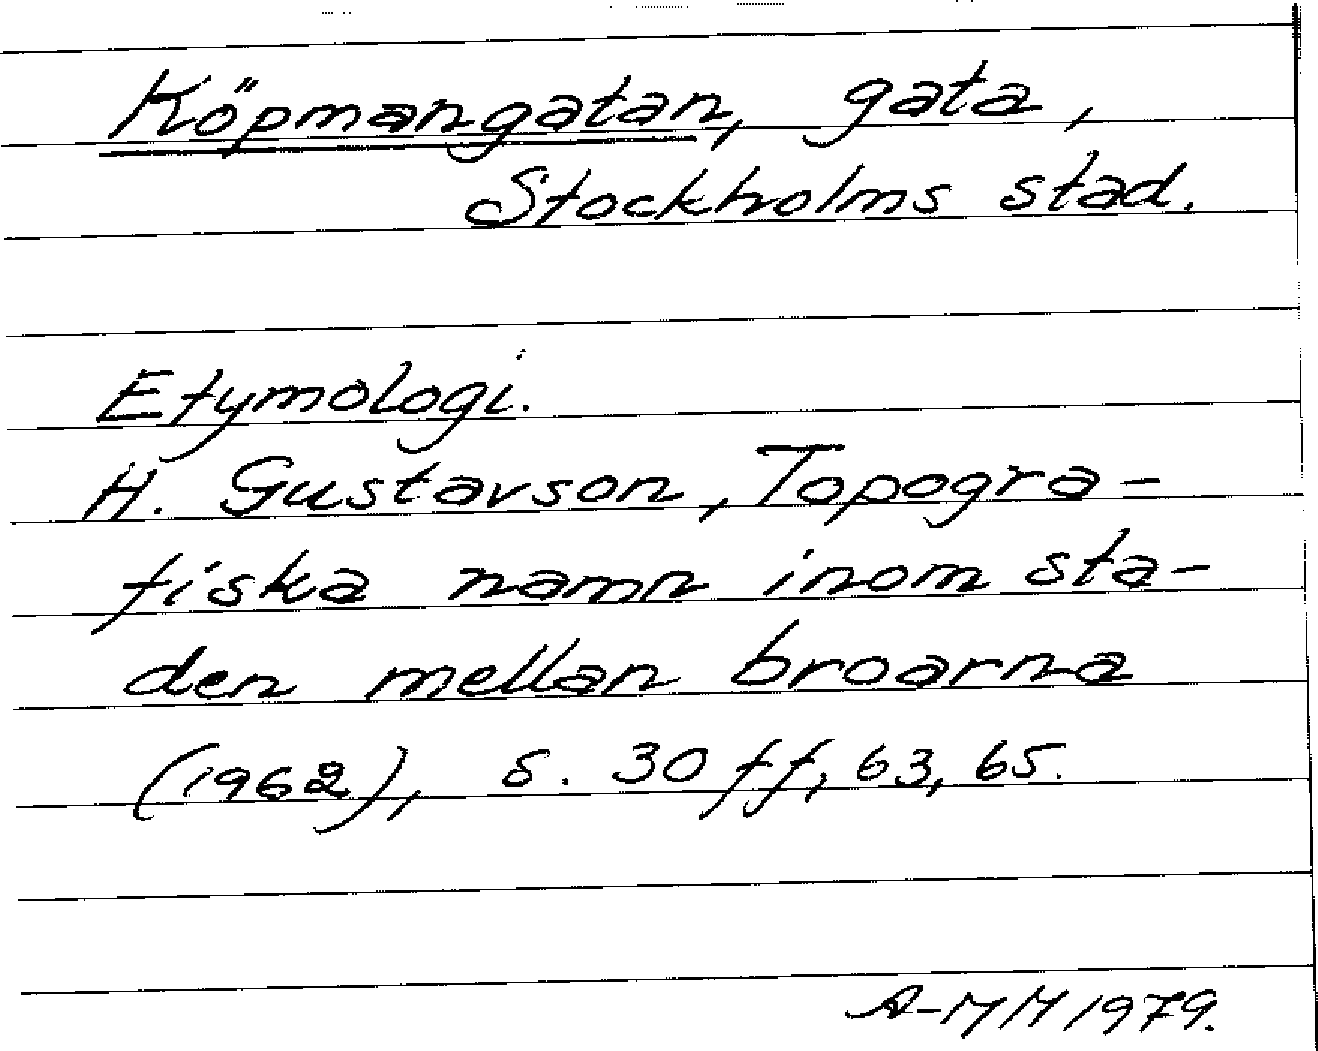 Köpmangatan, gata,
Stockholms stad.
Etymologi.
H. Gustavson, Topogra-
fiska namn inom sta-
den mellan broarna
(1962), s. 30 ff, 63, 65.
A-MM 1979.